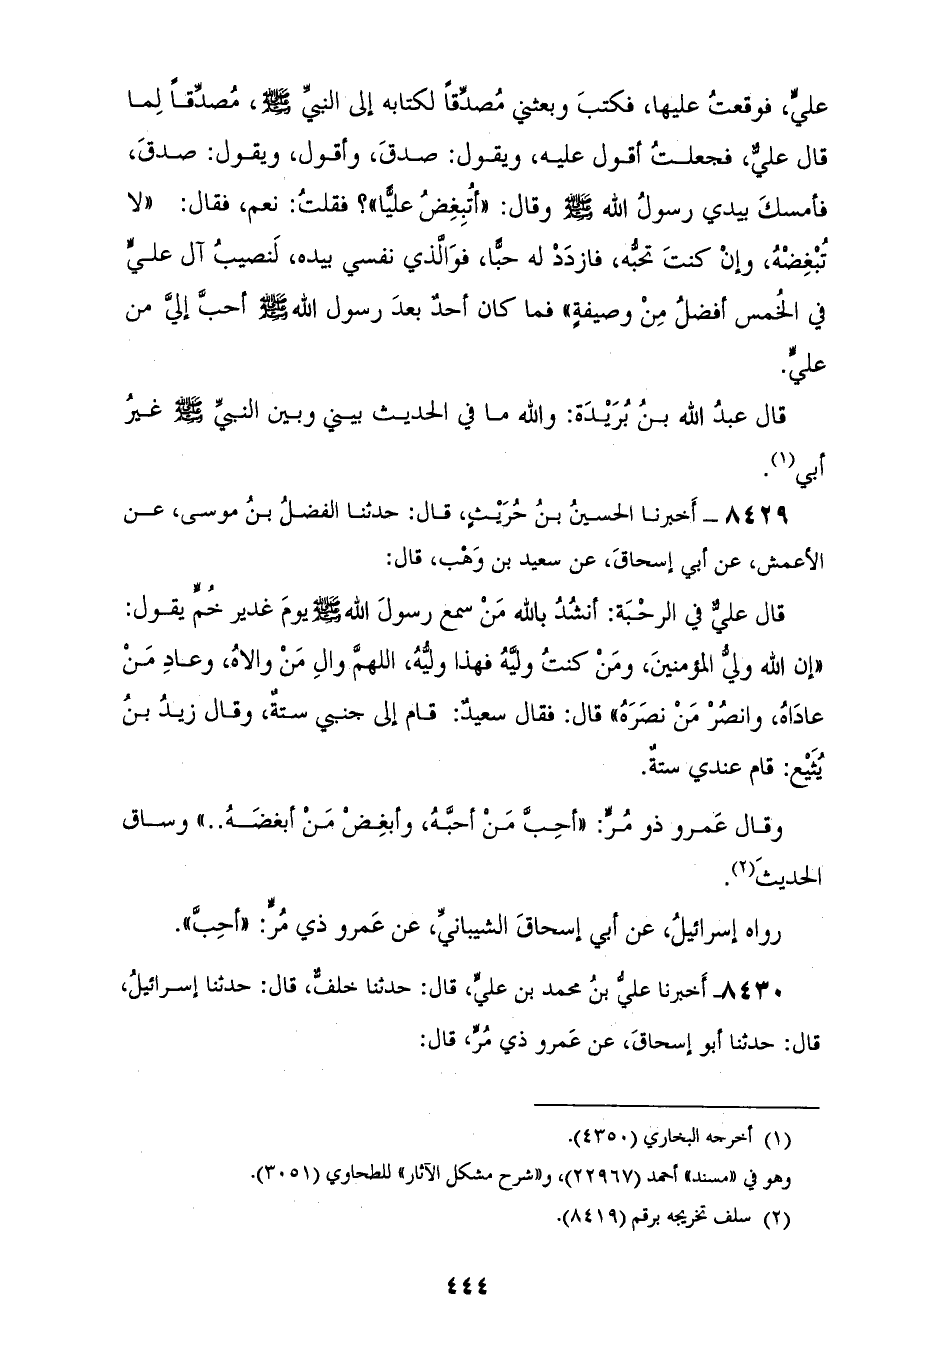 عليٍّ، فوقعتُ عليها، فكتبَ وبعثني مُصدِّقاً لكتابه إلى النبيِّ ﷺ، مُصدِّقاً لِما
قال عليٌّ، فجعلتُ أقول عليه، ويقول: صدقَ، وأقول، ويقول: صدقَ،
فأمسكَ بيدي رسولُ الله ﷺ وقال: «أَتُبغِضُ عليًّا»؟ فقلتُ: نعم، فقال: «لا
تُبْغِضْهُ، وإنْ كنتَ تحبُّه، فازدَدْ له حبًّا، فوَالَّذي نفسي بيده، لَنصيبُ آل عليٍّ
في الخُمس أفضلُ مِنْ وصيفةٍ» فما كان أحدٌ بعدَ رسول الله ﷺ أحبَّ إليَّ من
عليٍّ.
قال عبدُ الله بنُ بُرَيْدَة: والله ما في الحديث بيني وبين النبيِّ ﷺ غيرُ
أبي(١).
٨٤٢٩ ـ أَخبرنا الحسينُ بنُ حُرَيْثٍ، قال: حدثنا الفضلُ بنُ موسى، عن
الأعمش، عن أبي إسحاقَ، عن سعيد بن وَهْب، قال:
قال عليٌّ في الرحْبَة: أنشُدُ بالله مَنْ سمع رسولَ الله ﷺ يومَ غدير خُمٍّ يقول:
«إن الله وليُّ المؤمنينَ، ومَنْ كنتُ وليَّهُ فهذا وليُّهُ، اللهمَّ والِ مَنْ والاهُ، وعادِ مَنْ
عادَاهُ، وانصُرْ مَنْ نصَرَهُ» قال: فقال سعيدٌ: قام إلى جنبي ستةٌ، وقال زيدُ بنُ
يُثَيْع: قام عندي ستةٌ.
وقال عَمرو ذو مُرٍّ: «أَحِبَّ مَنْ أحبَّهُ، وأبغِضْ مَنْ أبغضَهُ..» وساق
الحديثَ(٢).
رواه إسرائيلُ، عن أبي إسحاقَ الشيبانيِّ، عن عَمرو ذي مُرٍّ: «أَحِبَّ».
٨٤٣٠ـ أَخبرنا عليُّ بنُ محمد بن عليٍّ، قال: حدثنا خلفٌ، قال: حدثنا إسرائيلُ،
قال: حدثنا أبو إسحاقَ، عن عَمرو ذي مُرٍّ، قال:
(١) أخرجه البخاري (٤٣٥٠).
وهو في «مسند» أحمد (٢٢٩٦٧)، و«شرح مشكل الآثار» للطحاوي (٣٠٥١).
(٢) سلف تخريجه برقم (٨٤١٩).
٤٤٤